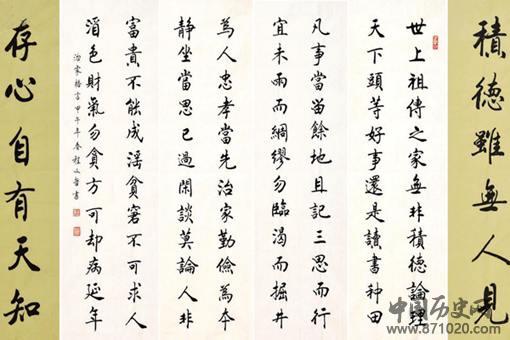 積德雖無人見
世上祖傳之家無非積德論理
天下頭等好事還是讀書種田
凡事當留餘地且記三思而行
宜未雨而綢繆勿臨渴而掘井
為人忠孝當先治家勤儉為本
靜坐當思己過閑談莫論人非
富貴不能成淫貧窘不可求人
酒色財氣勿貪方可却病延年
治家格言甲午年春程文書
存心自有天知
中国历史网
www.871020.com